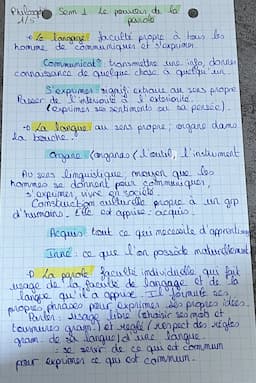 Philosophie Sem 1 Le pouvoir de la
1/5 parole
Le langage : faculté propre à tous les
homme de communiquer et s'exprimer.
Communiquer : transmettre une info, donner
connaissance de quelque chose à quelqu'un
S'exprimer : signifi extraire au sens propre
Passer de l'intériorité à l'extériorité.
(exprimer ses sentiments ou sa pensée).
La langue au sens propre, organe dans
la bouche.
Organe (organon) l'outil, l'instrument
Au sens linguistique, moyen que les
hommes se donnent pour communiquer,
s'exprimer, vivre en société
Construction culturelle propre à un grp
d'humains. Elle est apprise = acquis.
Acquis tout ce qui nécessite d'apprentissage
inné : ce que l'on possède naturellement
La parole faculté individuelle qui fait
usage de la faculté de langage et de la
langue qu'il a apprise. Il formule ses
propres phrases pour exprimer ses propres idées.
Parler : usage libre (choisir ses mots et
tournures gram.) et réglé (respect des règles
gram. de sa langue) d'une langue.
se servir de ce qui est commun
pour exprimer ce qui est commun.